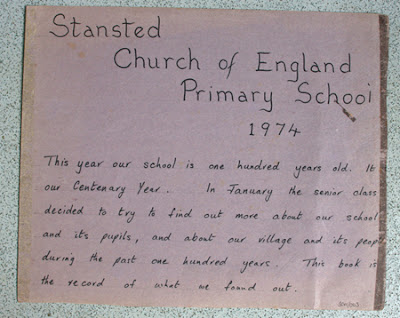 Stansted
Church of England
Primary School
1974
This year our school is one hundred years old. It
our Centenary Year. In January the senior class
decided to try to find out more about our school
and its pupils, and about our village and its peop
during the past one hundred years. This book is
the record of what we found out.